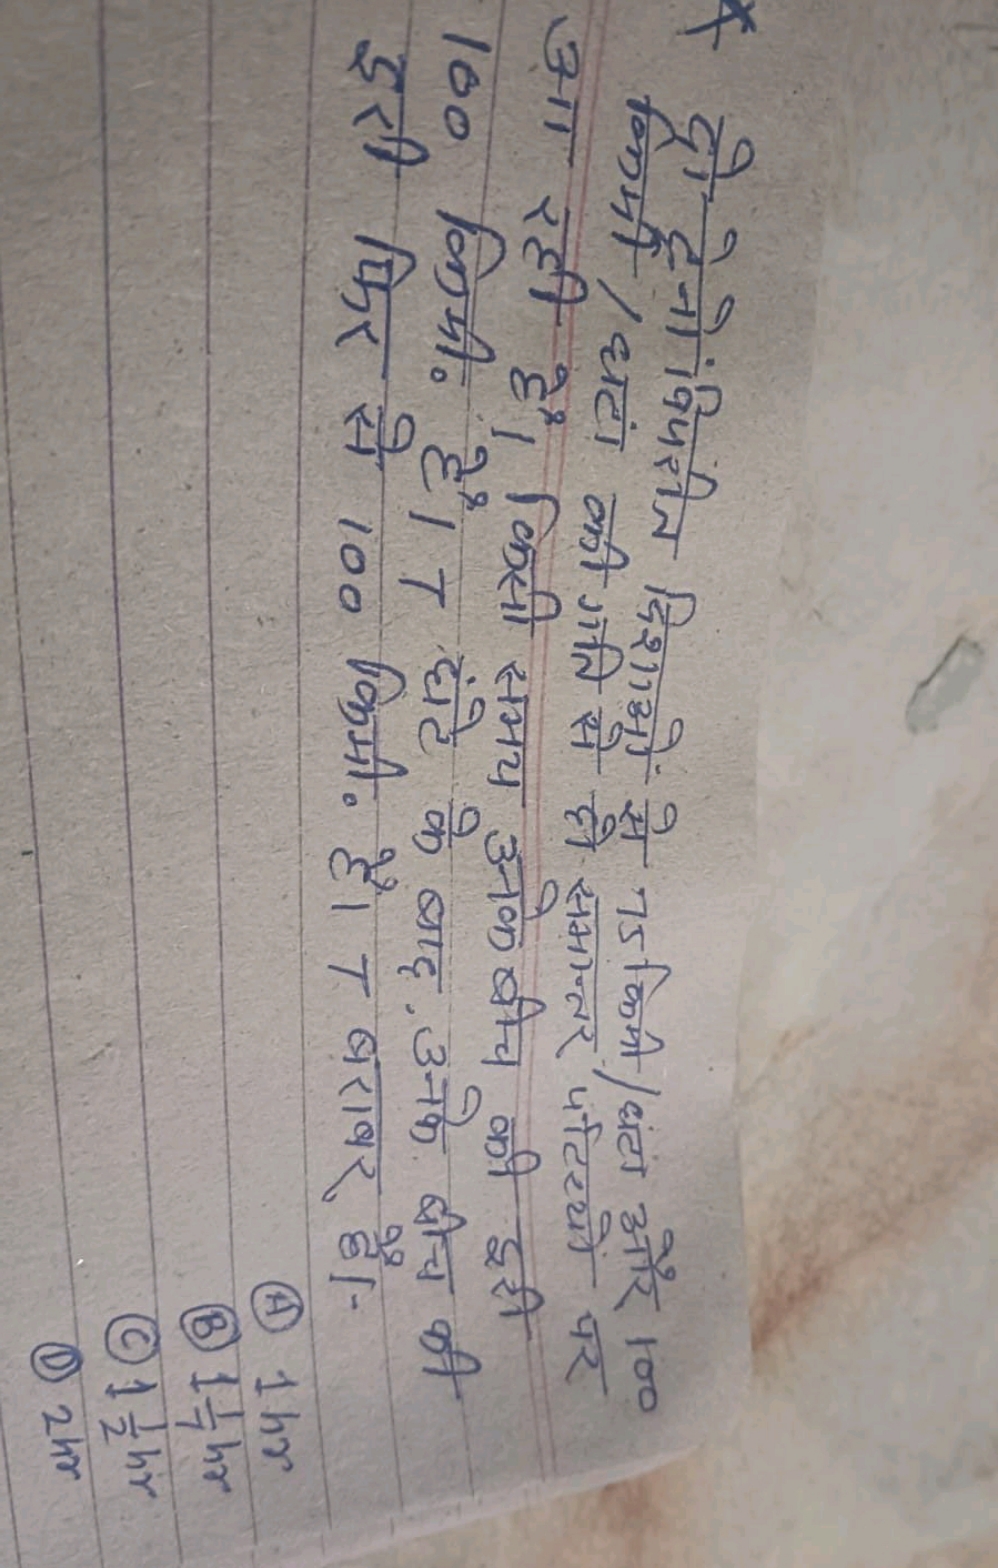 X
दो ट्रेनों विपरीत दिशाओं से 75 किमी/घंटा और 100
किमी/घंटा की गति से दो समान्तर पटरियों पर
आ रही हैं। किसी समय उनके बीच की दूरी
100 किमी. है। T घंटे के बाद, उनके बीच की
दूरी फिर से 100 किमी. है। T बराबर है।-
(A) 1 hr
(B) 1 1/7 hr
(C) 1 1/2 hr
(D) 2 hr